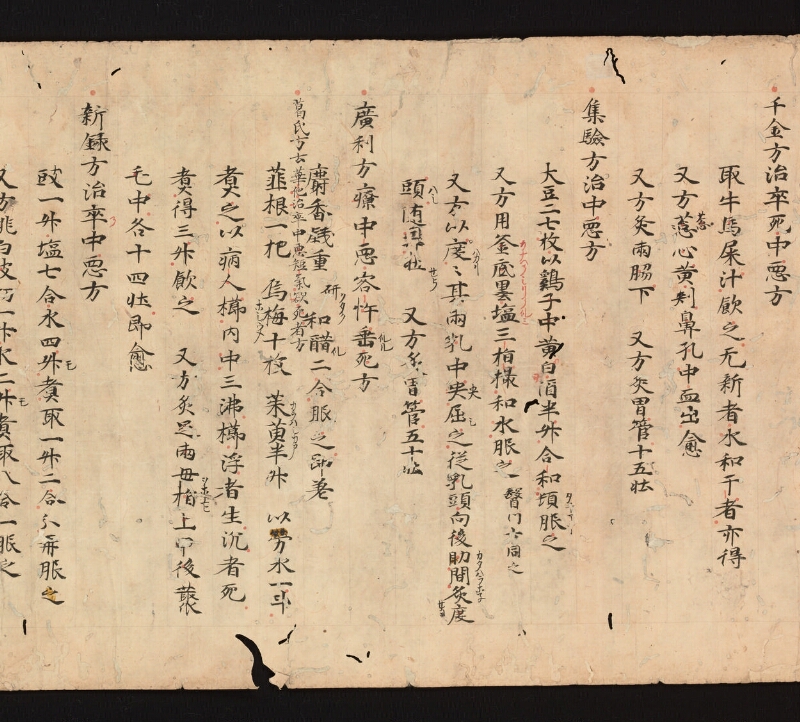 千金方治卒死中惡方
取牛馬屎汁飲之无新者水和干者亦得
又方葱心黄刾鼻孔中血出愈
又方灸兩脇下 又方灸胃管十五壮
集驗方治中惡方
大豆二七枚以鷄子中黄白酒半升合和頓服之
又方用釜底黒塩三指撮和水服之 醫門方同之
又方以度〻其兩乳中央屈之従乳頭向後肋間灸度
頭随年壮 又方灸胃管五十壮
廣利方療中惡客忤垂死方
麝香錢重 研 和醋二合服之即差
葛氏方云華他治卒中惡短氣欲死者方
韮根一把 烏梅十枚 茱萸半升 以勞水一斗
煑之以病人櫛内中三沸櫛浮者生沉者死
煑得三升飲之 又方灸足兩母指上甲後聚
毛中各十四壮即愈
新録方治卒中惡方
豉一升塩七合水四升煑取一升二合分再服之
又方桃白皮 一升水二升煑取八合一服之